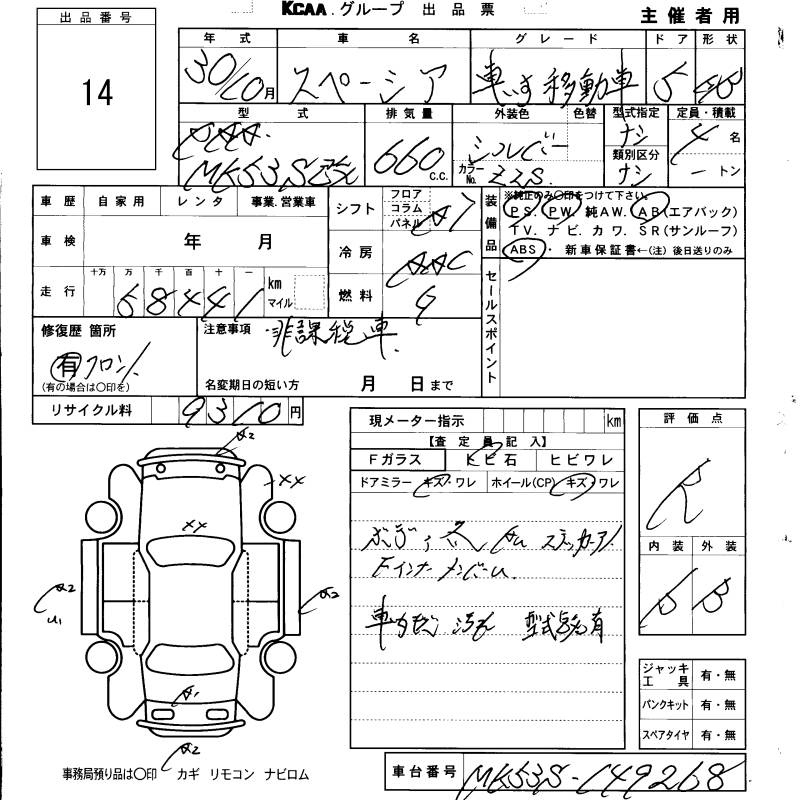 KCAA.グループ 出品票 主催者用
出品番号
14
年式 車名 グレード ドア 形状
30/10月 スペーシア 車いす移動車 5
型式 排気量 外装色 色替 型式指定 定員・積載
MK53S改 660 c.c. シルバー カラーNo. Z2S ナシ 類別区分 ナシ 4名 ートン
車歴 自家用 レンタ 事業.営業車
車検 年 月
走行 十万 万 千 百 十 一
58441 km マイル
シフト フロア コラム パネル A7
冷房 AAC
燃料 G
装備品 ※純正のみ〇印をつけて下さい。
PS. PW. 純AW. AB(エアバック)
TV. ナビ. カワ. SR(サンルーフ)
ABS・ 新車保証書←(注)後日送りのみ
セールスポイント
修復歴 箇所
有 フロント
(有の場合は〇印を)
注意事項 非課税車
名変期日の短い方 月 日まで
リサイクル料 9310円
現メーター指示 km
【査定員記入】
Fガラス トビ石 ヒビワレ
ドアミラー キズ・ワレ ホイール(CP) キズ・ワレ
評価点
R
内装 外装
B B
A2
XX
XX
A2
U1
A2
A1
A2
FインナーメンバーU.
型式 有
ジャッキ工具 有・無
パンクキット 有・無
スペアタイヤ 有・無
事務局預り品は〇印 カギ リモコン ナビロム
車台番号 MK53S-149268